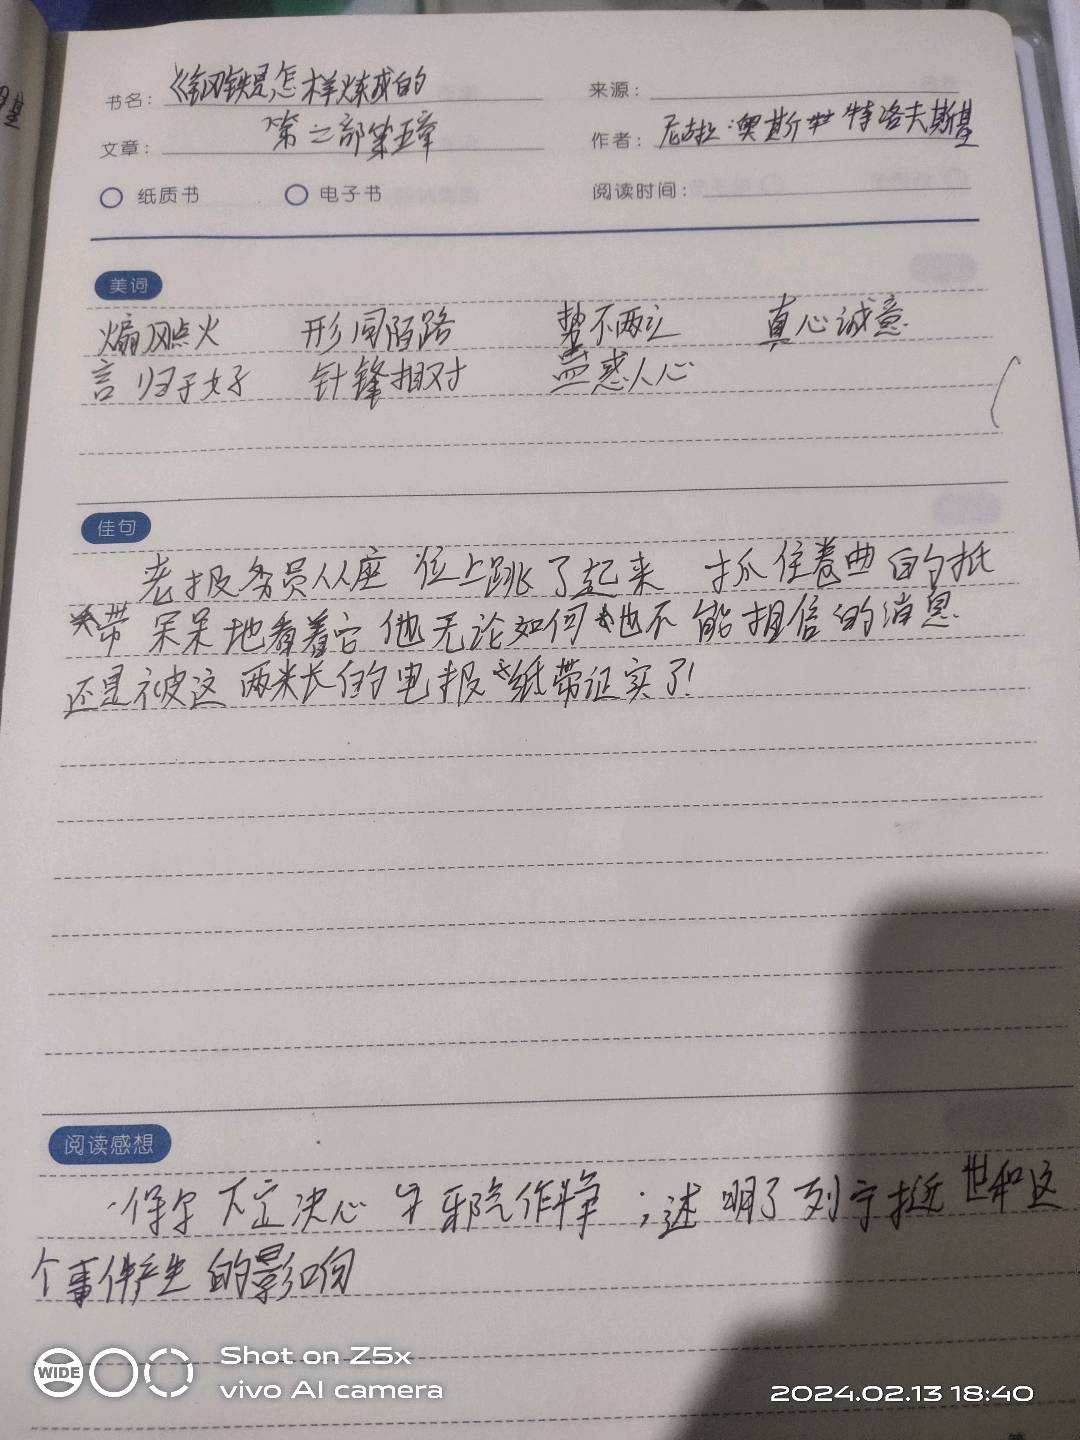 书名：《钢铁是怎样炼成的
来源：
文章：第二部第五章
作者：尼古拉·奥斯 特洛夫斯基
纸质书 电子书 阅读时间：
美词
煽风点火 形同陌路 势不两立 真心诚意
言归于好 针锋相对 蛊惑人心
佳句
老报务员从座位上跳了起来 抓住卷曲的纸
带 呆呆地看着它 他无论如何也不能相信的消息
还是被这两米长的电报纸带证实了!
阅读感想
保尔下定决心与邪气作争；述明了列宁逝世和这
个事件产生的影响
WIDE
Shot on Z5x
vivo AI camera
2024.02.13 18:40